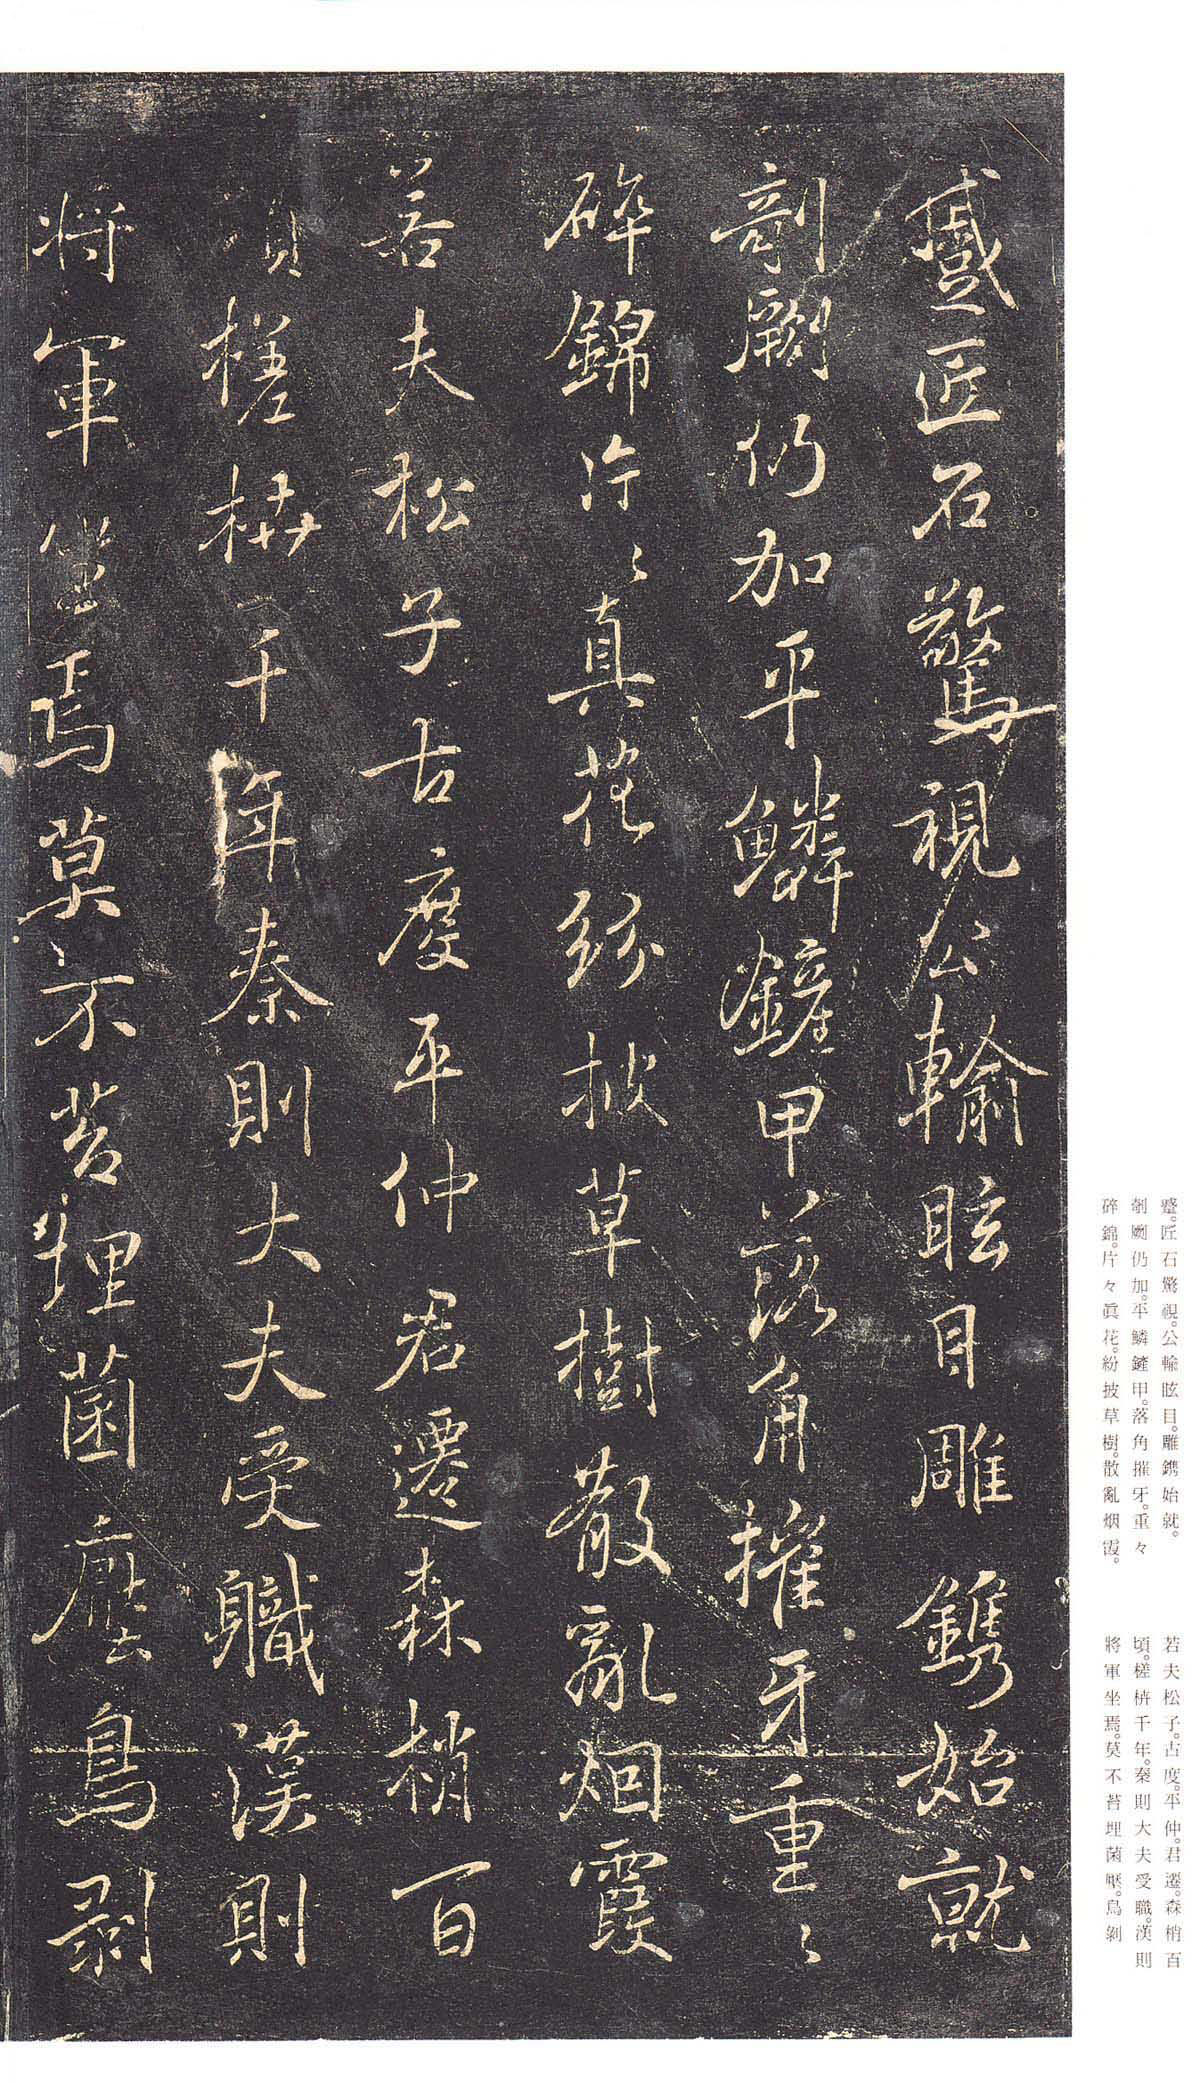 蹙匠石驚視公輸眩目雕鐫始就
剞劂仍加平鱗鏟甲落角摧牙重〻
碎錦片〻真花紛披草樹散亂烟霞
若夫松子古度平仲君遷森梢百
頃槎枿千年秦則大夫受職漢則
將軍坐焉莫不苔埋菌壓鳥剝
蹙。匠石驚視。公輸眩目。雕鐫始就。
剞劂仍加。平鱗鏟甲。落角摧牙。重々
碎錦。片々眞花。紛披草樹。散亂烟霞。
若夫松子。古度。平仲。君遷。森梢百
頃。槎枿千年。秦則大夫受職。漢則
將軍坐焉。莫不苔埋菌壓。鳥剝